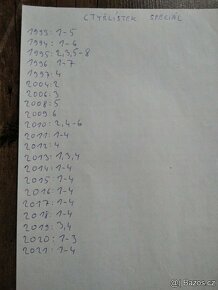 ČTYŘLÍSTEK SPECIÁL
1993: 1-5
1994: 1-6
1995: 2,3,5-8
1996: 1-7
1997: 4
2004: 2
2006: 3
2008: 5
2009: 6
2010: 2,4-6
2011: 1-4
2012: 4
2013: 1,3,4
2014: 1-4
2015: 1-4
2016: 1-4
2017: 1-4
2018: 1-4
2019: 3,4
2020: 1-3
2021: 1-4
Bazoš.cz